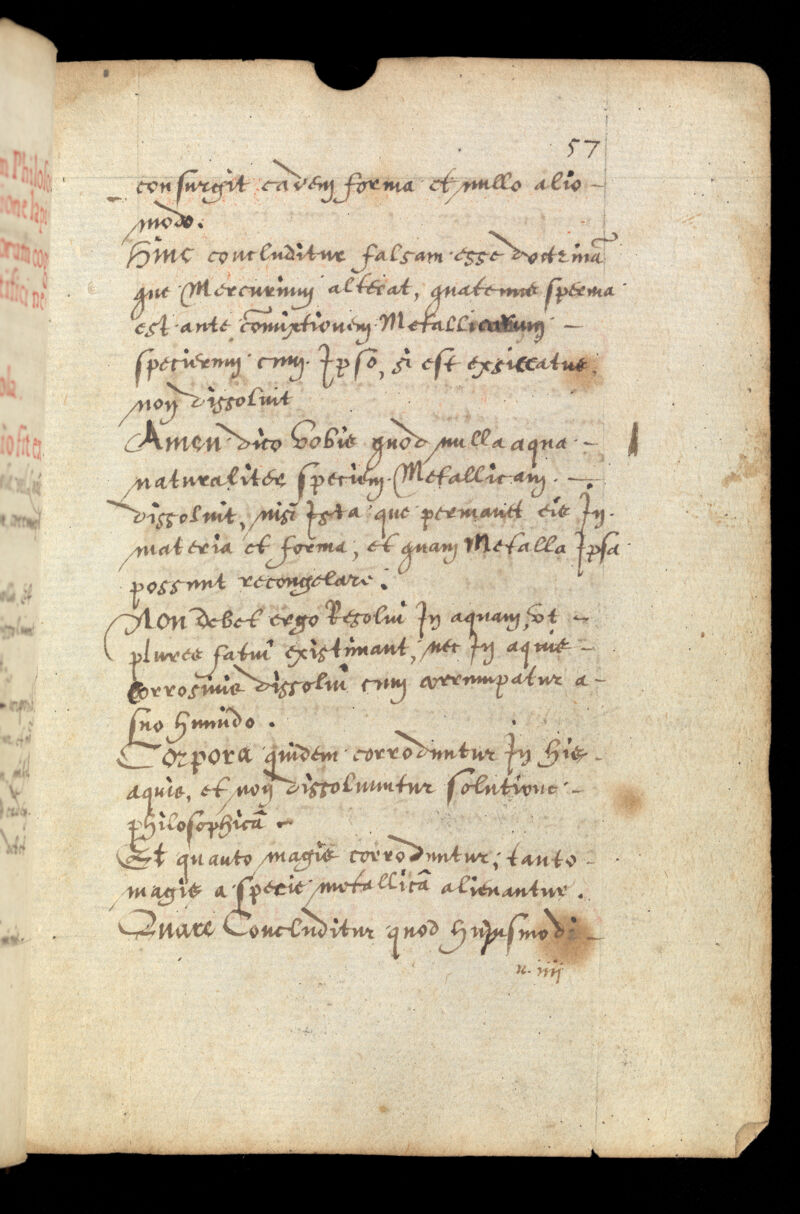 57
consurgit eadem forma et nullo alio –
modo.
Hinc concluditur falsam esse doctrinā
que Mercurium alterat, quatenus sperma
est ante cōmixtionem Metallicarum –
specierum cum Ipso, si est exsiccatus,
non dissoluit
Amen dico vobis quod nulla aqua –
naturaliter speciem Metallicam. –
dissoluit, nisi Ista que permanet eis In
materia et forma, et quam Metalla Ipsa
possunt recongelare.
Non debet ergo Resolui In aquam, vt –
plures fatui existimant, nec In aquis –
Corrosiuis dissolui cum corrumpatur a –
suo humido.
Corpora quidem corroduntur In His –
aquis, et non dissoluuntur solutione –
philosophicā –
Et quanto magis corroduntur, tanto –
magis a specie metallicā alienantur.
Quare Concluditur quod Huiusmodi –
n. iiij